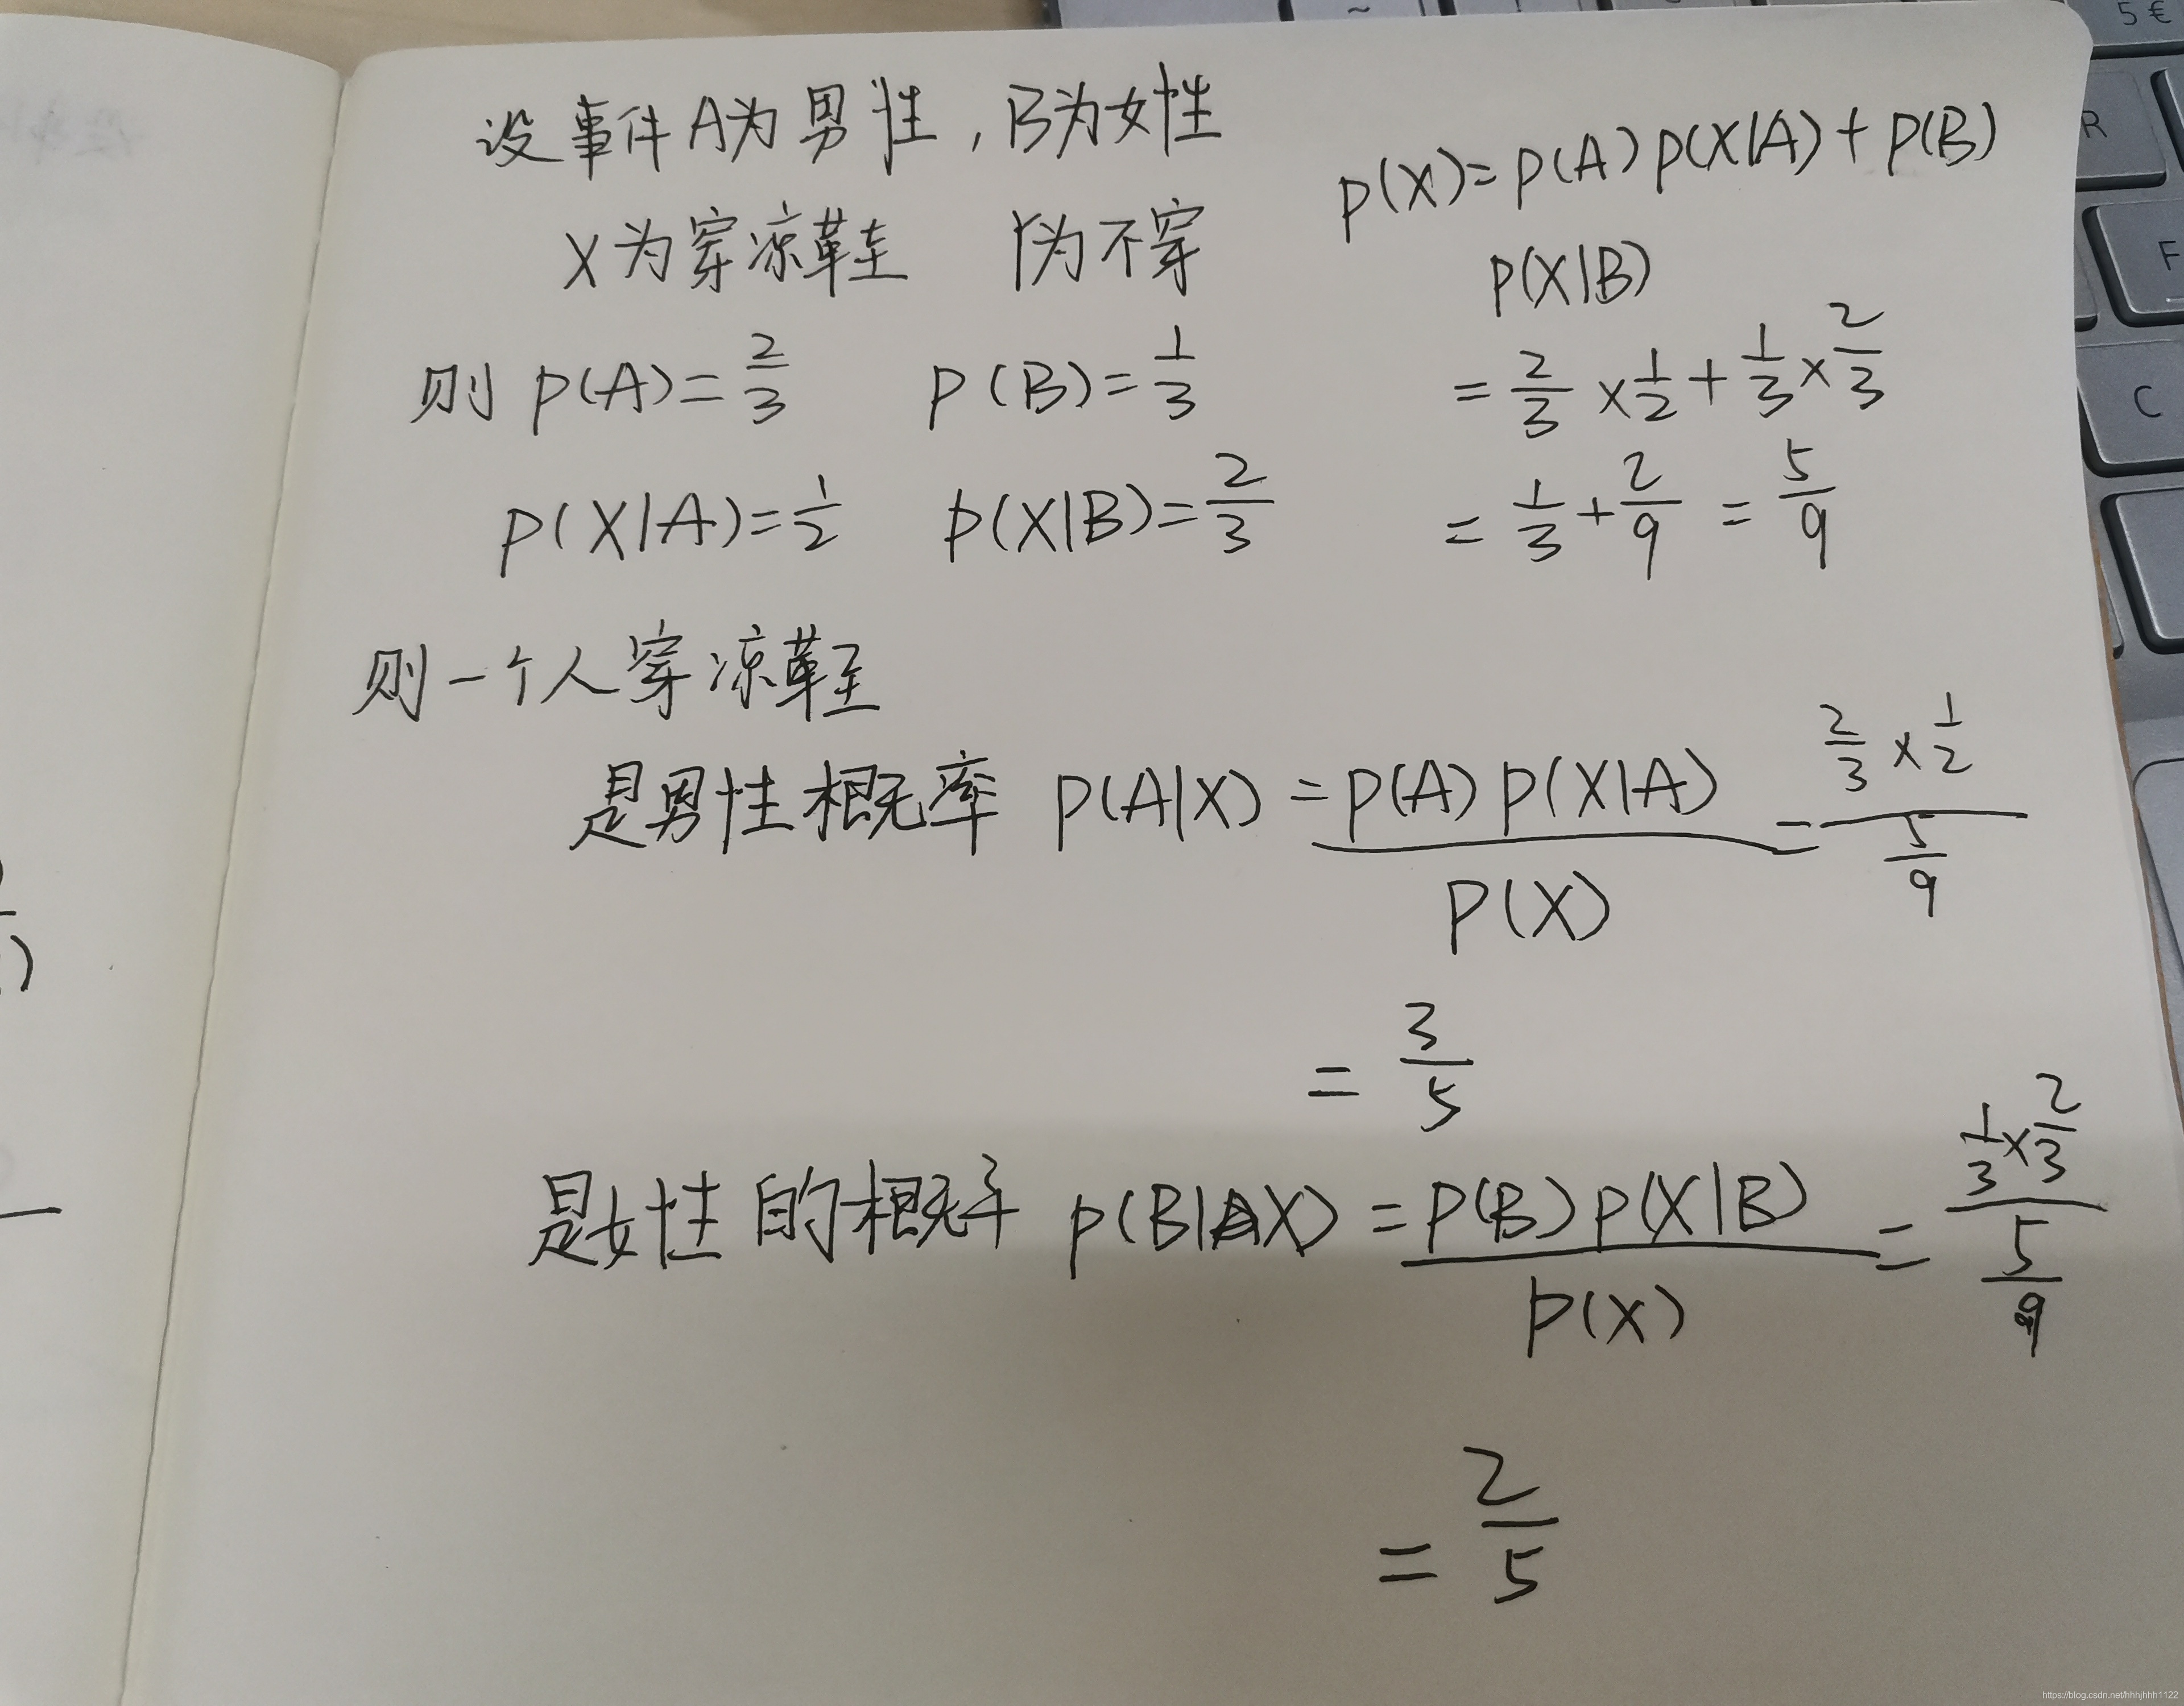 设事件A为男性，B为女性
X为穿凉鞋 Y为不穿
则 P(A)=2/3 P(B)=1/3
P(X|A)=1/2 P(X|B)=2/3
P(X)=P(A)P(X|A)+P(B)
P(X|B)
=2/3×1/2+1/3×2/3
=1/3+2/9=5/9
则一个人穿凉鞋
是男性概率 P(A|X)=P(A)P(X|A)/P(X)=(2/3×1/2)/(5/9)
=3/5
是女性的概率 P(B|X)=P(B)P(X|B)/P(X)=(1/3×2/3)/(5/9)
=2/5
5 €
R
F
C
https://blog.csdn.net/hhhjhhh1122